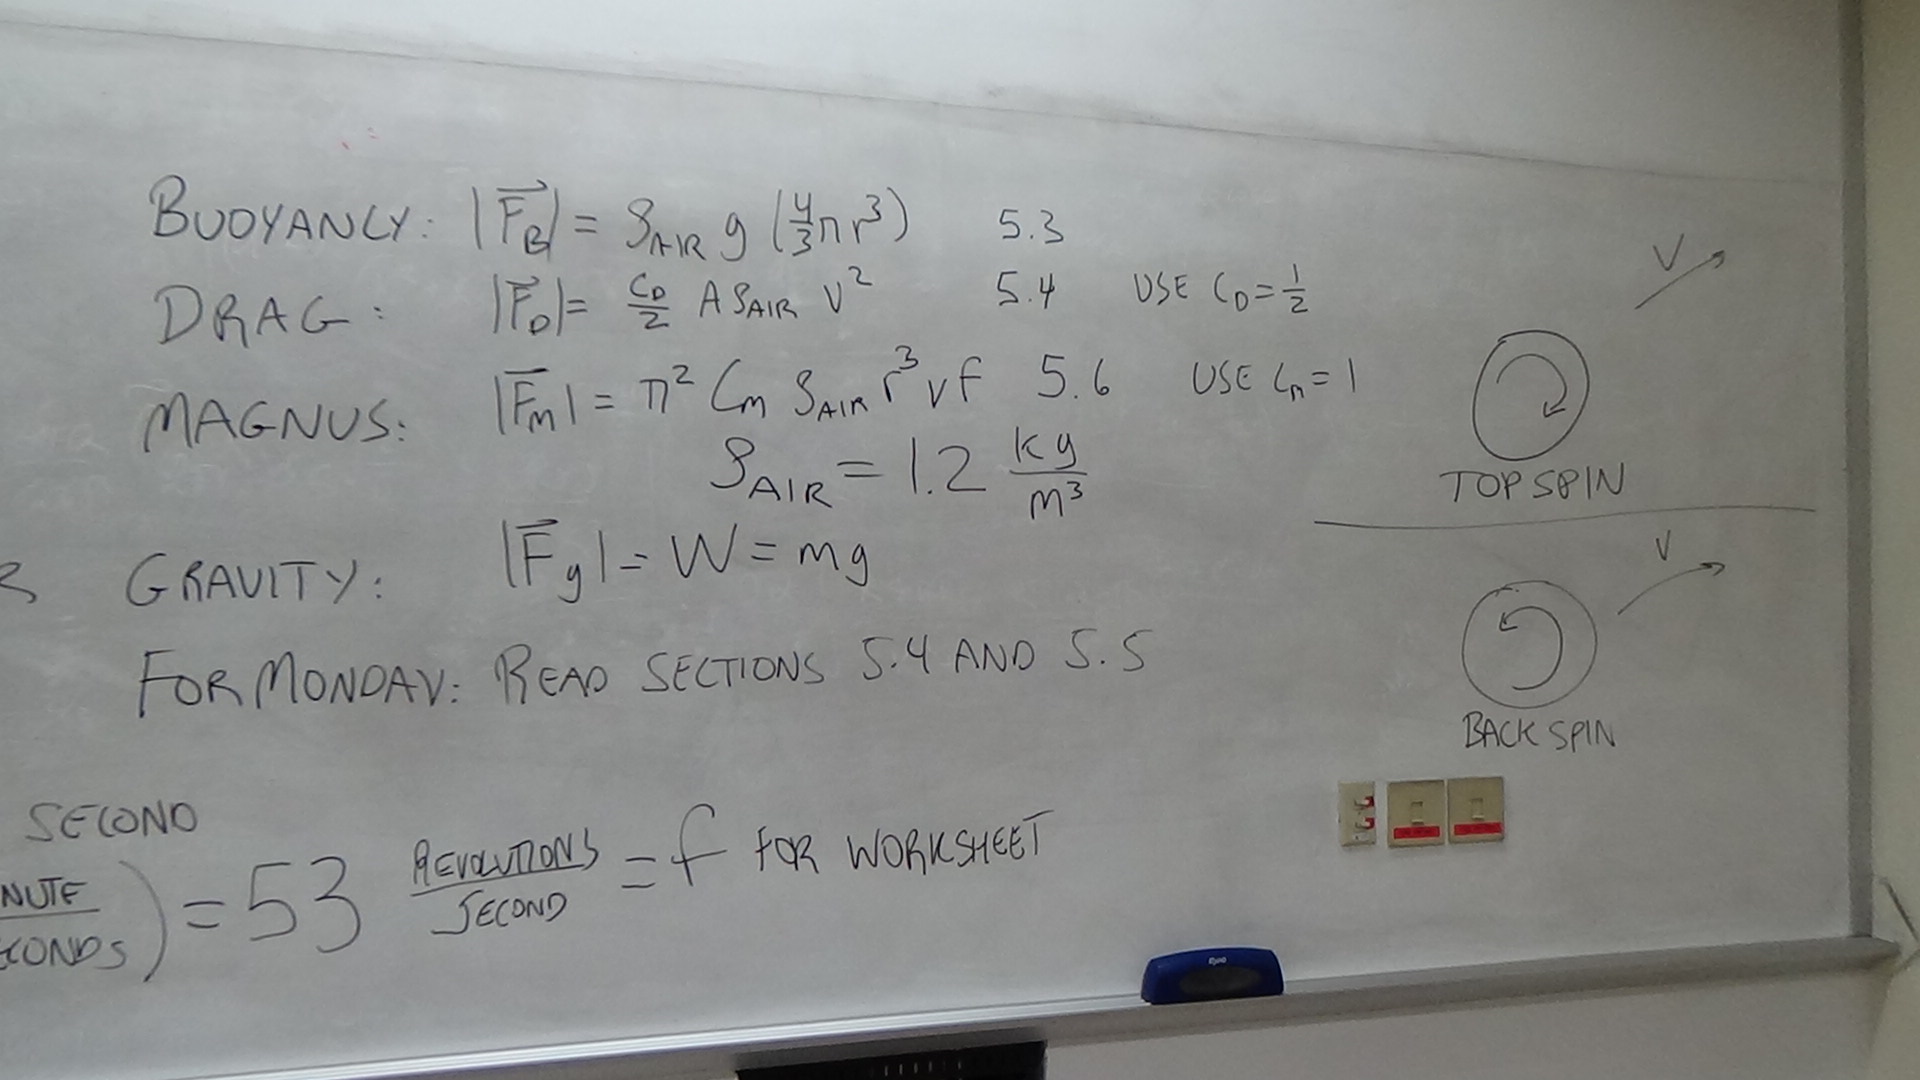 BUOYANCY: |F⃗_B| = ρ_AIR g (4/3 π r³) 5.3
DRAG: |F⃗_D| = C_D/2 A ρ_AIR V² 5.4 USE C_D = 1/2
MAGNUS: |F⃗_m| = π² C_m ρ_AIR r³ v f 5.6 USE C_m = 1
ρ_AIR = 1.2 kg/m³
GRAVITY: |F⃗_g| = W = mg
FOR MONDAY: READ SECTIONS 5.4 AND 5.5
SECOND
NUTE
CONDS
) = 53 REVOLUTIONS/SECOND = f FOR WORKSHEET
V
TOP SPIN
V
BACK SPIN
Expo